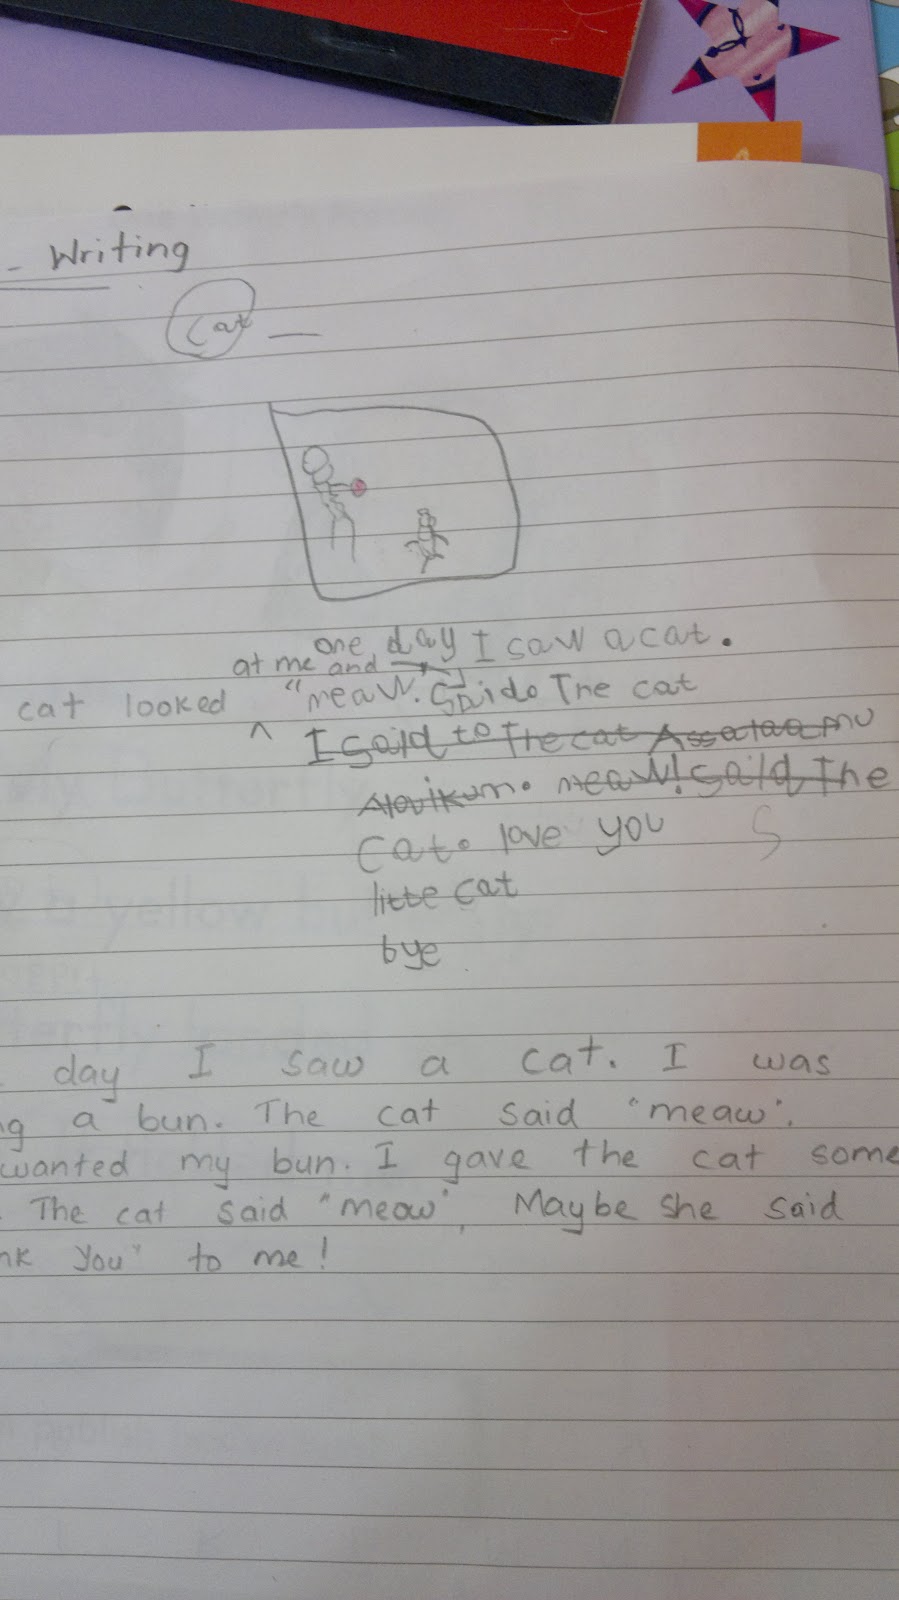 - Writing
Cat —
one day I saw a cat.
at me and
cat looked ^ "meaw". Saido The cat
I said to The cat Assalaamu
Alaikum. meaw! said The
Cat. love you S
litte cat
bye
day I saw a cat. I was
ng a bun. The cat said "meaw".
wanted my bun. I gave the cat some
. The cat said "meow". Maybe she said
nk you" to me!